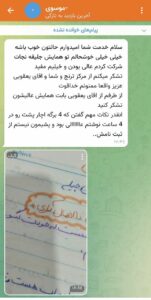 موسوی-
آخرین بازدید به تازگی
پیام‌های خوانده نشده
سلام خدمت شما امیدوارم حالتون خوب باشه
خیلی خیلی خوشحالم تو همایش جلیقه نجات
شرکت کردم عالی بودن و خیلیم مفید
تشکر میکنم از مرکز ترنج و شما و آقای یعقوبی
عزیز واقعا ممنونم خداقوت
از طرفم از آقای یعقوبی بابت همایش عالیشون
تشکر کنید
انقدر نکات مهم گفتن که 4 برگه آچار پشت رو در
4 ساعت نوشتم عااااااالی بود و پشیمون نیستم از
ثبت نامش..